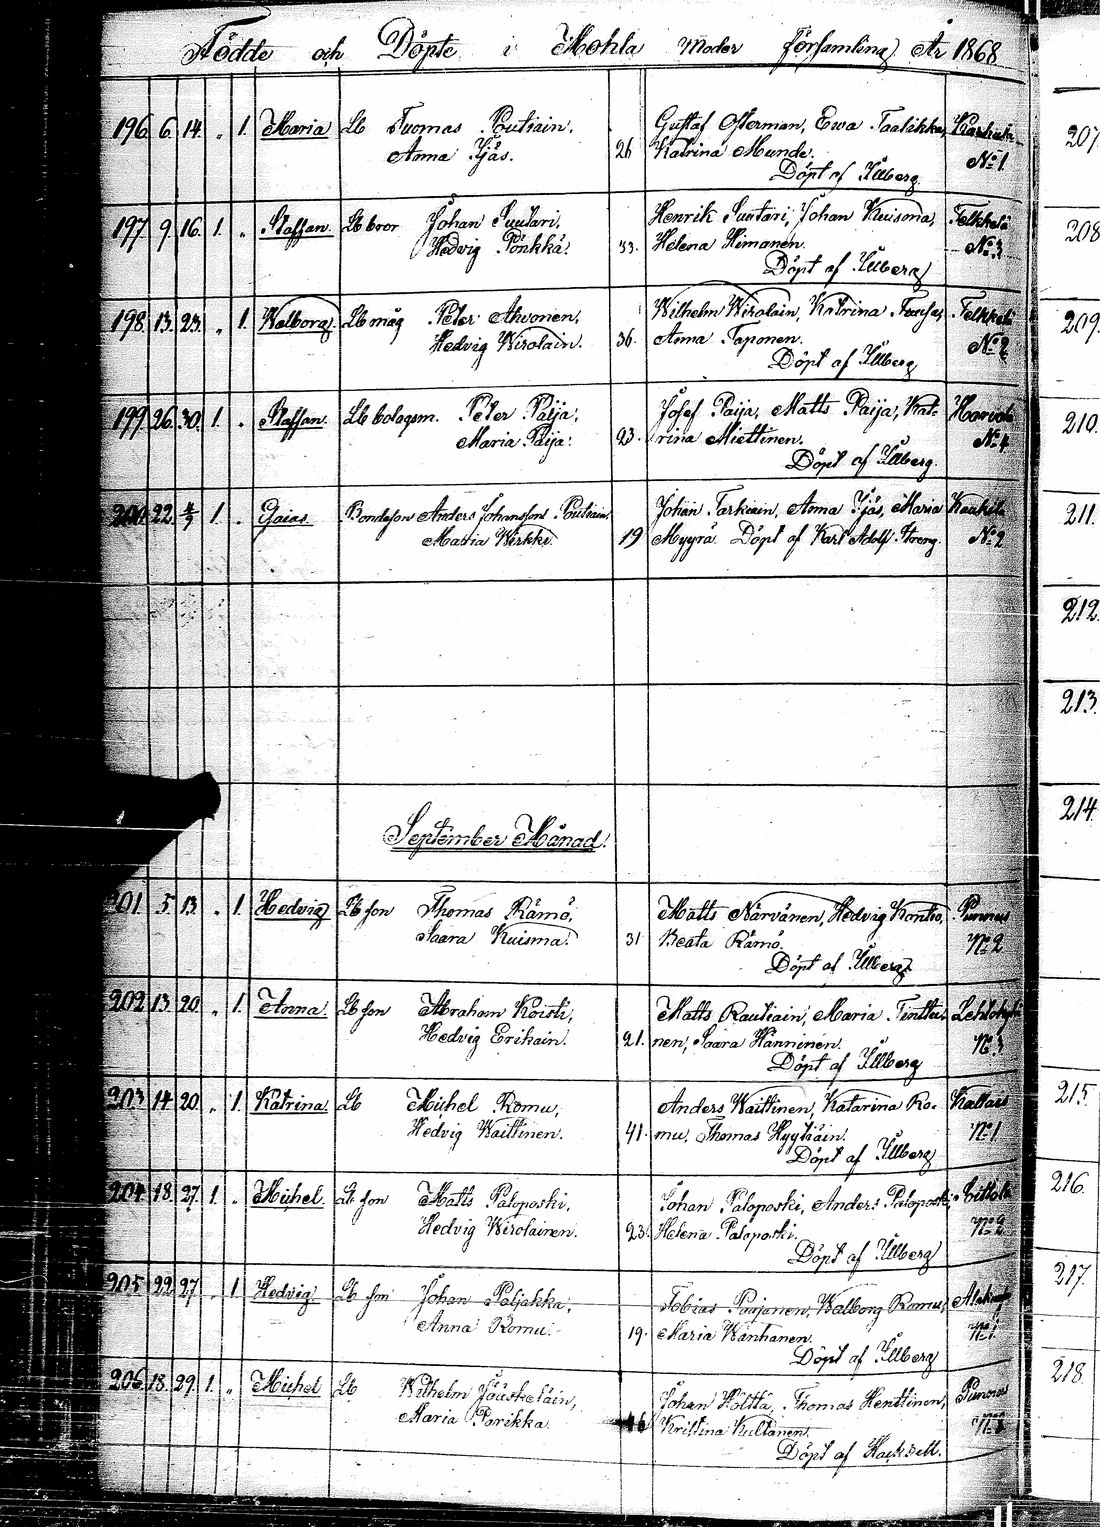 Födde och Döpte i Mohla Moder församling År 1868
196. 6. 14. „ 1. Maria Lb Tuomas Poutiain, Gustaf Osterman, Ewa Taalikka,
Anna Ijäs. 26 Katrina Munde. No 1
Döpt af Illberg.
197. 9. 16. 1. „ Staffan. Lb bror Johan Suutari, Henrik Suutari, Johan Kuisma, Telkkälä
Hedvig Pönkkä. 33. Helena Himanen. No 3
Döpt af Illberg
198. 13. 23. „ 1. Walborg. Lb måg Peter Ahvonen, Wilhelm Wirolain, Katrina Telkkälä
Hedvig Wirolain. 36. Anna Taponen. No 2
Döpt af Illberg
199. 26. 30. 1. „ Staffan. Lb bolagsm. Peter Paija, Josef Paija, Matts Paija, Kat-
Maria Paija. 23. rina Miettinen. No 4
Döpt af Illberg.
200. 22. 1. „ Gaias. Bondeson Anders Johansson Poutiain, Johan Tarkiain, Anna Ijäs, Maria
Maria Wirkki. 19 Myyrä. Döpt af Karl Adolf Streng. No 2
September Månad.
201. 5. 13. „ 1. Hedvig Lb son Thomas Rämö, Matts Närvänen, Hedvig Kontio, Punnus
Saara Kuisma. 31 Beata Rämö. No 2
Döpt af Illberg
202. 13. 20. „ 1. Anna. Lb son Abraham Koisti, Matts Rautiain, Maria Tintti-
Hedvig Erikäin. 21. nen, Saara Hänninen. No 3
Döpt af Illberg
203. 14. 20. „ 1. Katrina. Lb Michel Romu, Anders Waittinen, Katarina Ro-
Hedvig Waittinen. 41. mu, Thomas Hyytiäin. No 1
Döpt af Illberg
204. 18. 27. 1. „ Michel. Lb son Matts Paloposki, Johan Paloposki, Anders Paloposki,
Hedvig Wirolainen. 23. Helena Paloposki. No 2
Döpt af Illberg
205. 22. 27. „ 1 Hedvig. Lb son Johan Paljakka, Tobias Paajanen, Walborg Romu,
Anna Romu. 19. Maria Wanhanen. No 1
Döpt af Illberg
206. 18. 29. 1. „ Michel Lb Wilhelm Jääskeläin, Johan Hölttä, Thomas Henttinen, Punnus
Maria Parikka. 46 Kristina Kultanen.
Döpt af Hackzell.
207.
208
209.
210.
211.
212.
213.
214
215.
216.
217.
218.